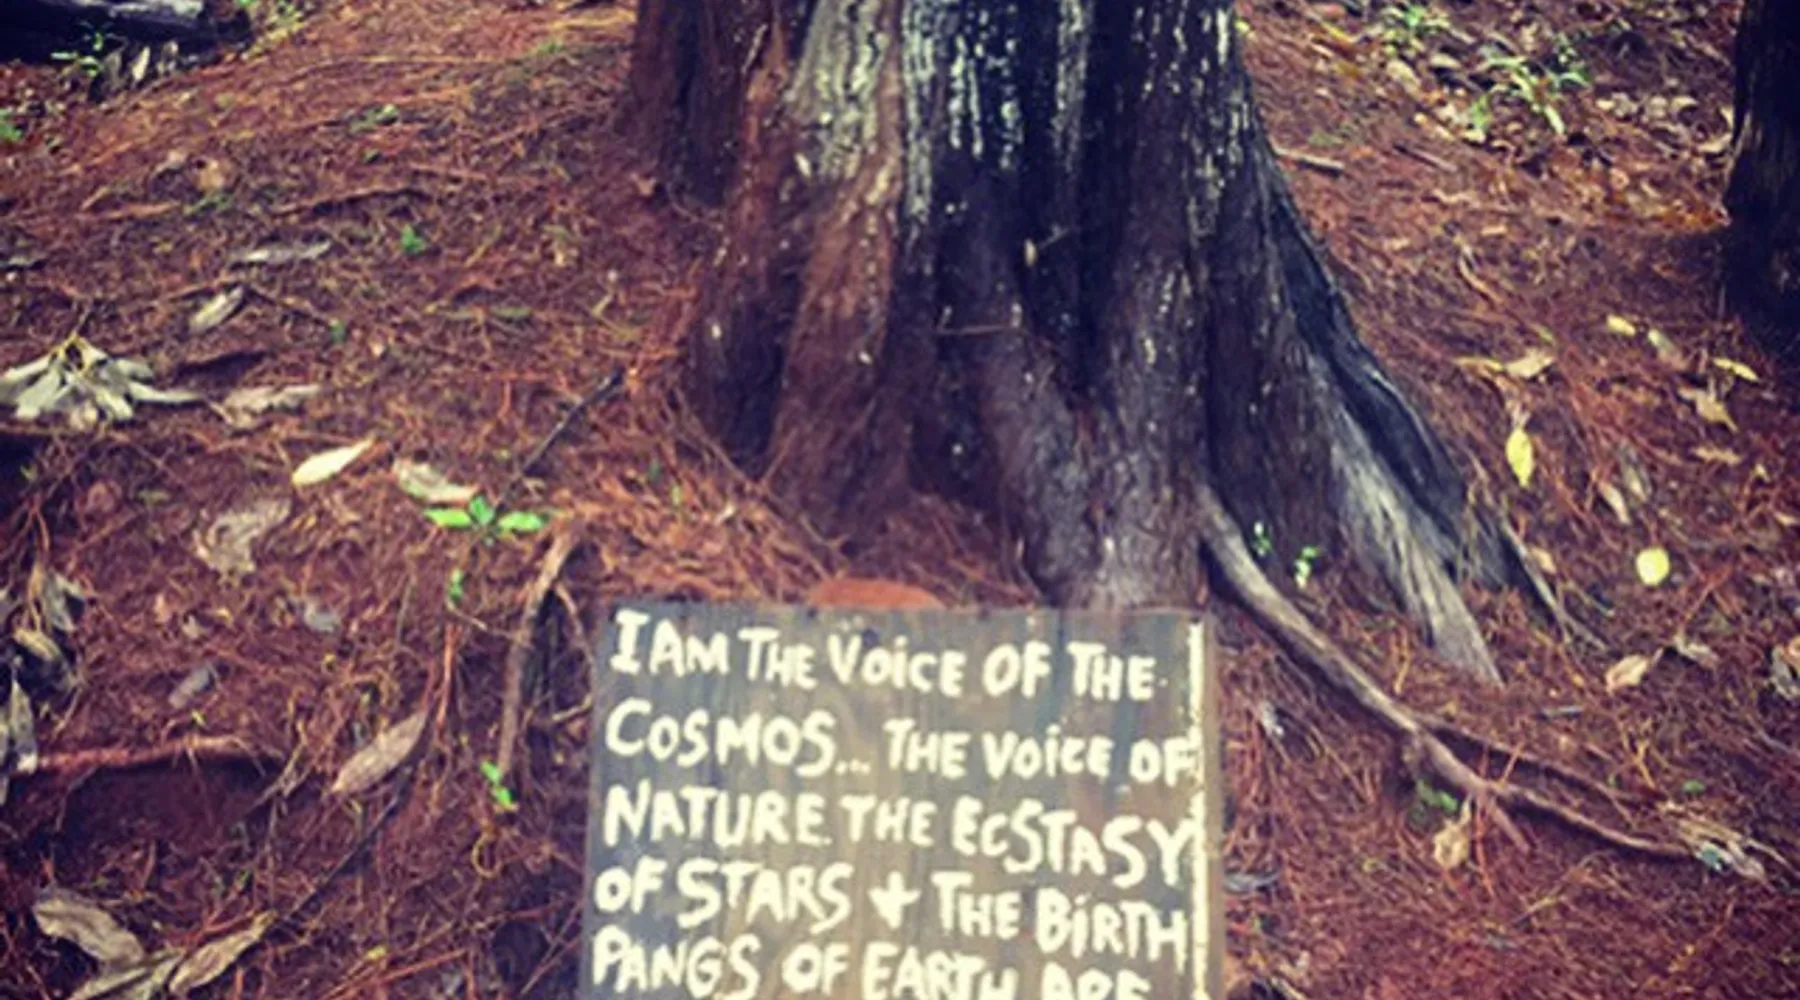 I AM THE VOiCE OF THE
COSMOS... THE VOiCE OF
NATURE THE ECSTASY
OF STARS + THE BiRTH
PANGS OF EARTH ARE